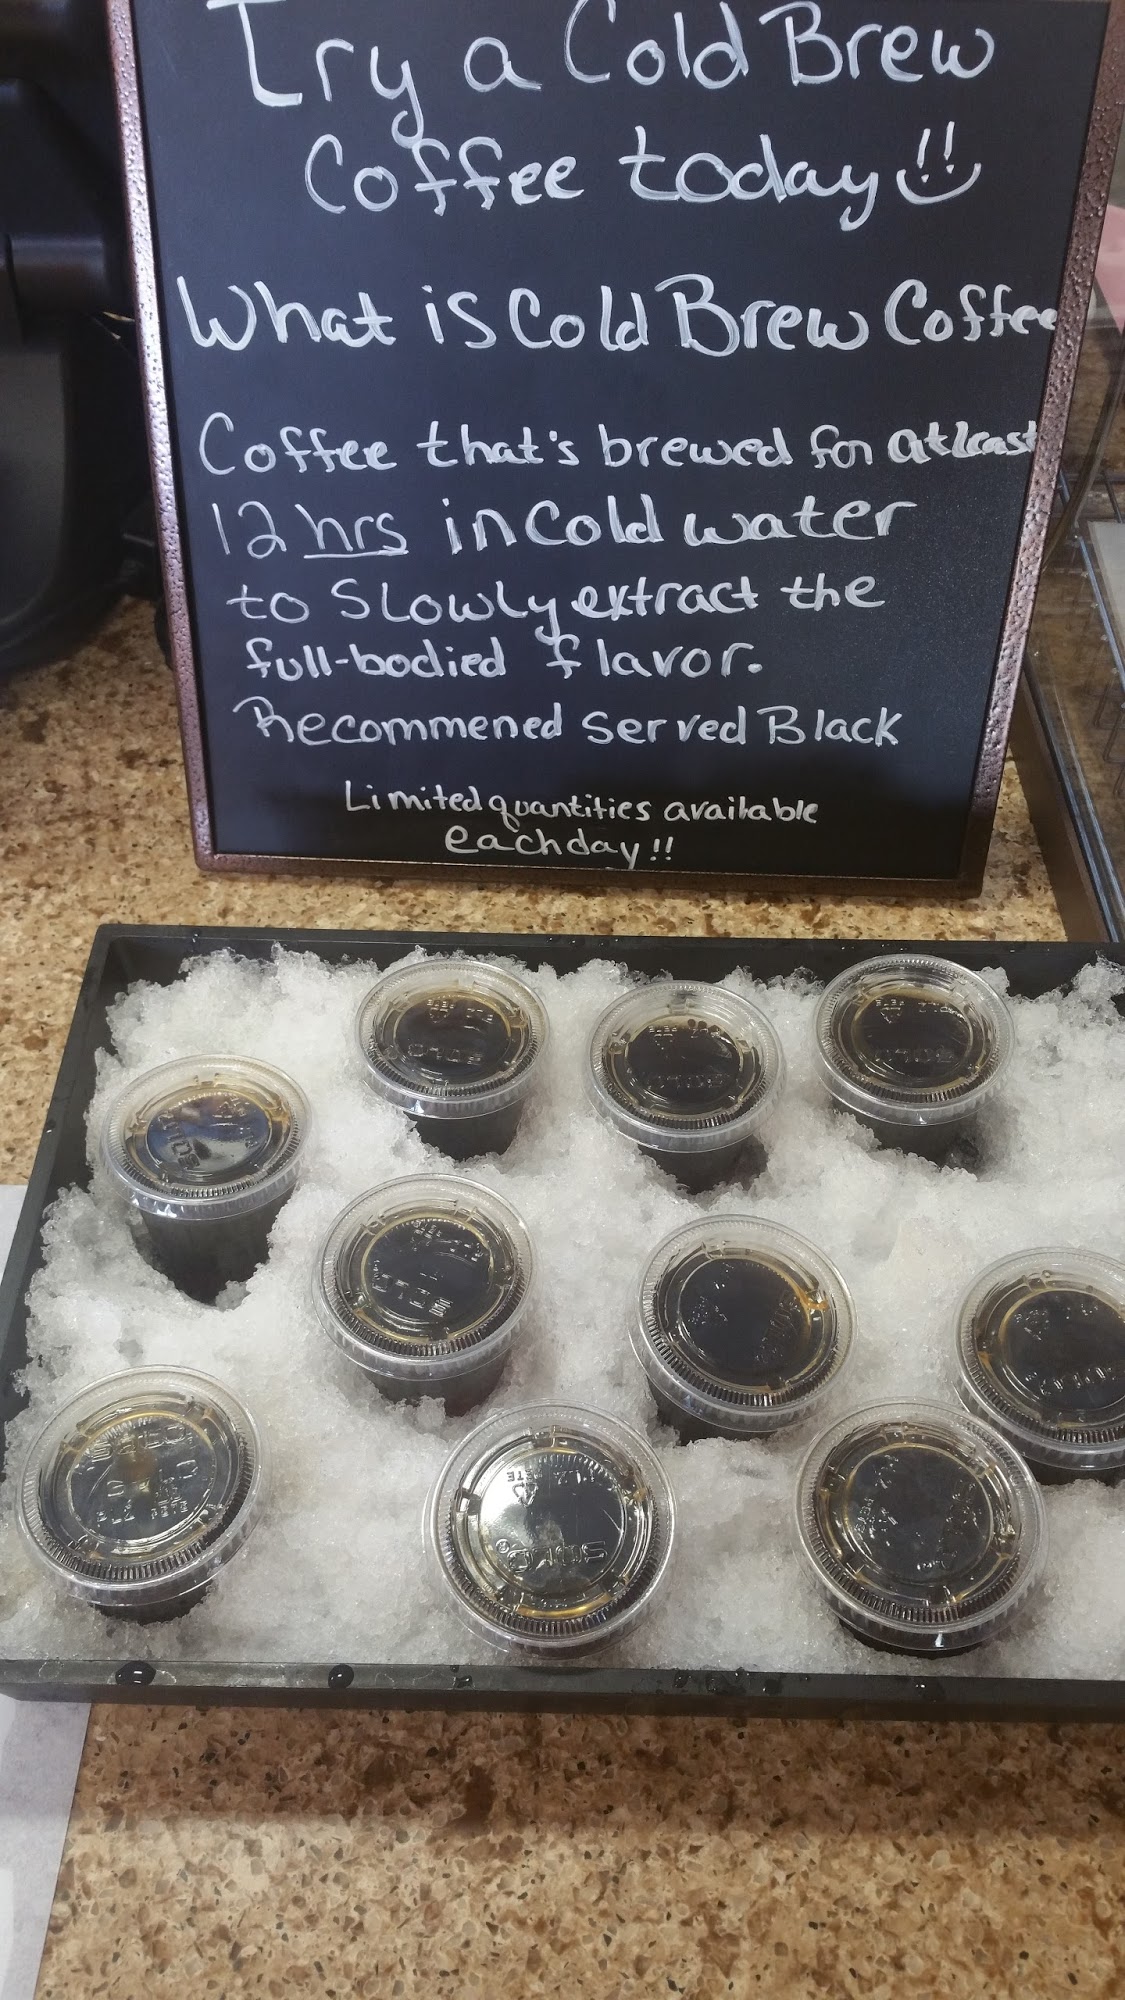 Try a Cold Brew
Coffee today!!
What is Cold Brew Coffee
Coffee that's brewed for at least
12 hrs in Cold water
to Slowly extract the
full-bodied flavor.
Recommened served Black
Limited quantities available
each day!!
SOLO
PLA
PETE
SOLO